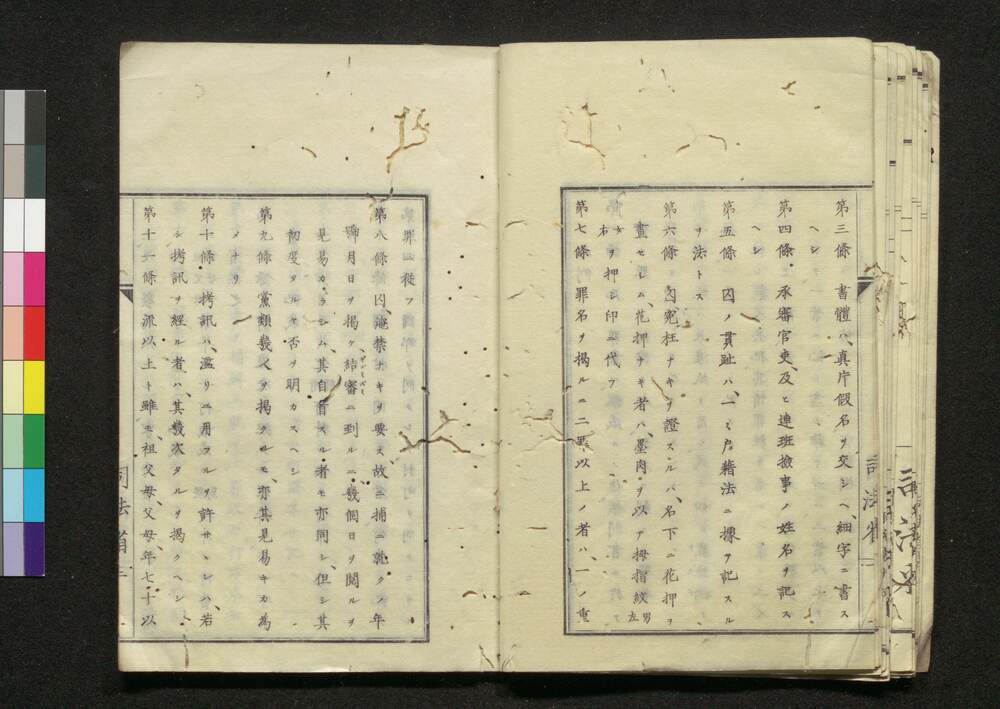 第三條 書體ハ、真片假名ヲ交シヘ細字ニ書ス
ヘシ
第四條 承審官吏、及ヒ連班撿事ノ姓名ヲ記ス
ヘシ
第五條 囚ノ貫趾ハ、一ニ戸藉法ニ據ヲ記スル
ヲ法トス
第六條 囚冤枉ナキヲ證スルハ、名下ニ花押ヲ
畫セシム、花押ナキ者ハ、墨肉ヲ以テ拇指紋男左
女右ヲ押シ印ニ代フ
第七條 罪名ヲ掲ルニ二罪以上ノ者ハ、一ノ重
罪ニ從フ
第八條 囚、淹禁ナキヲ要ス、故ニ捕ニ就クノ年
月日ヲ掲ケ、結審ニ到ルニ、幾個日ヲ閲ルヲ
見易カラシム、其自首スル者モ亦同シ、但シ其
初度タルヤ否ヲ明カスヘシ
第九條 黨類幾人ヲ掲クルモ、亦其見易キカ為
メナリ
第十條 拷訊ハ、濫リニ用フルヲ許サヽレハ、若
シ拷訊ヲ經ル者ハ、其幾次タルヲ掲クヘシ
第十一條 派以上ト雖モ、祖父母、父母、年七十以
司法省